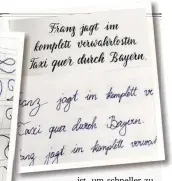 Franz jagt im
komplett verwahrlosten
Taxi quer durch Bayern.
anz jagt im komplett ve
Taxi quer durch Bayern.
anz jagt im komplett verwahr
ist, um schneller zu